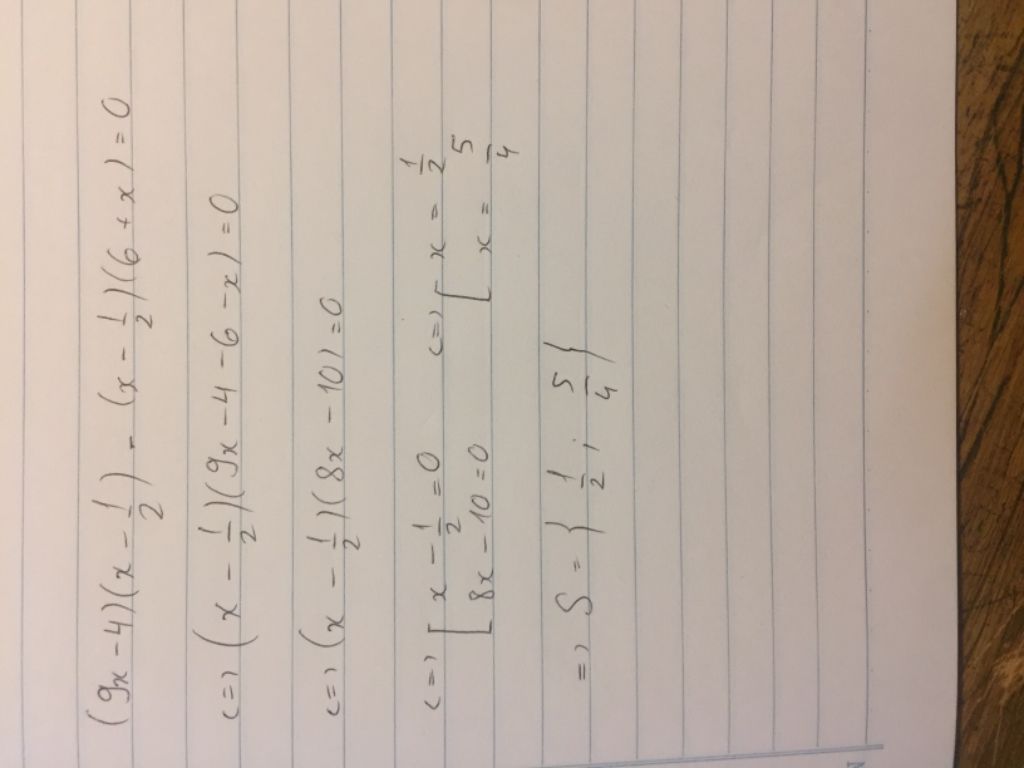 (9x - 4)(x - 1/2) - (x - 1/2)(6 + x) = 0
<=> (x - 1/2)(9x - 4 - 6 - x) = 0
<=> (x - 1/2)(8x - 10) = 0
<=> [ x - 1/2 = 0 <=> [ x = 1/2
8x - 10 = 0 x = 5/4
=> S = { 1/2 ; 5/4 }